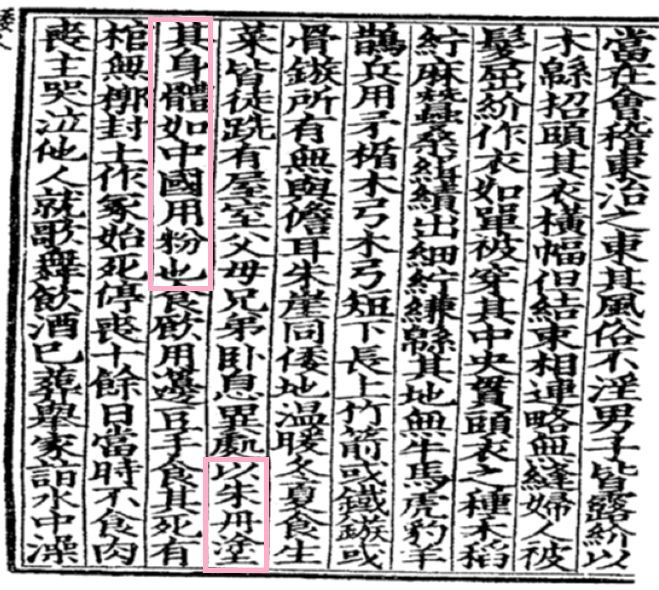 當在會稽東治之東其風俗不淫男子皆露紒以
木緜招頭其衣橫幅但結束相連略無縫婦人被
髮屈紒作衣如單被穿其中央貫頭衣之種禾稻
紵麻蠶桑緝績出細紵縑緜其地無牛馬虎豹羊
鵲兵用矛楯木弓木弓短下長上竹箭或鐵鏃或
骨鏃所有無與儋耳朱崖同倭地溫暖冬夏食生
菜皆徒跣有屋室父母兄弟卧息異處以朱丹塗
其身體如中國用粉也食飲用籩豆手食其死有
棺無槨封土作冢始死停喪十餘日當時不食肉
喪主哭泣他人就歌舞飲酒已葬舉家詣水中澡